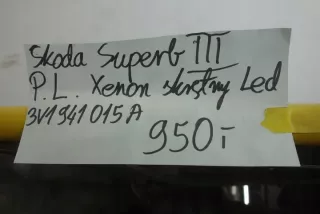 Skoda Superb III
P.L. Xenon skrętny Led
3V1941015A
950,-